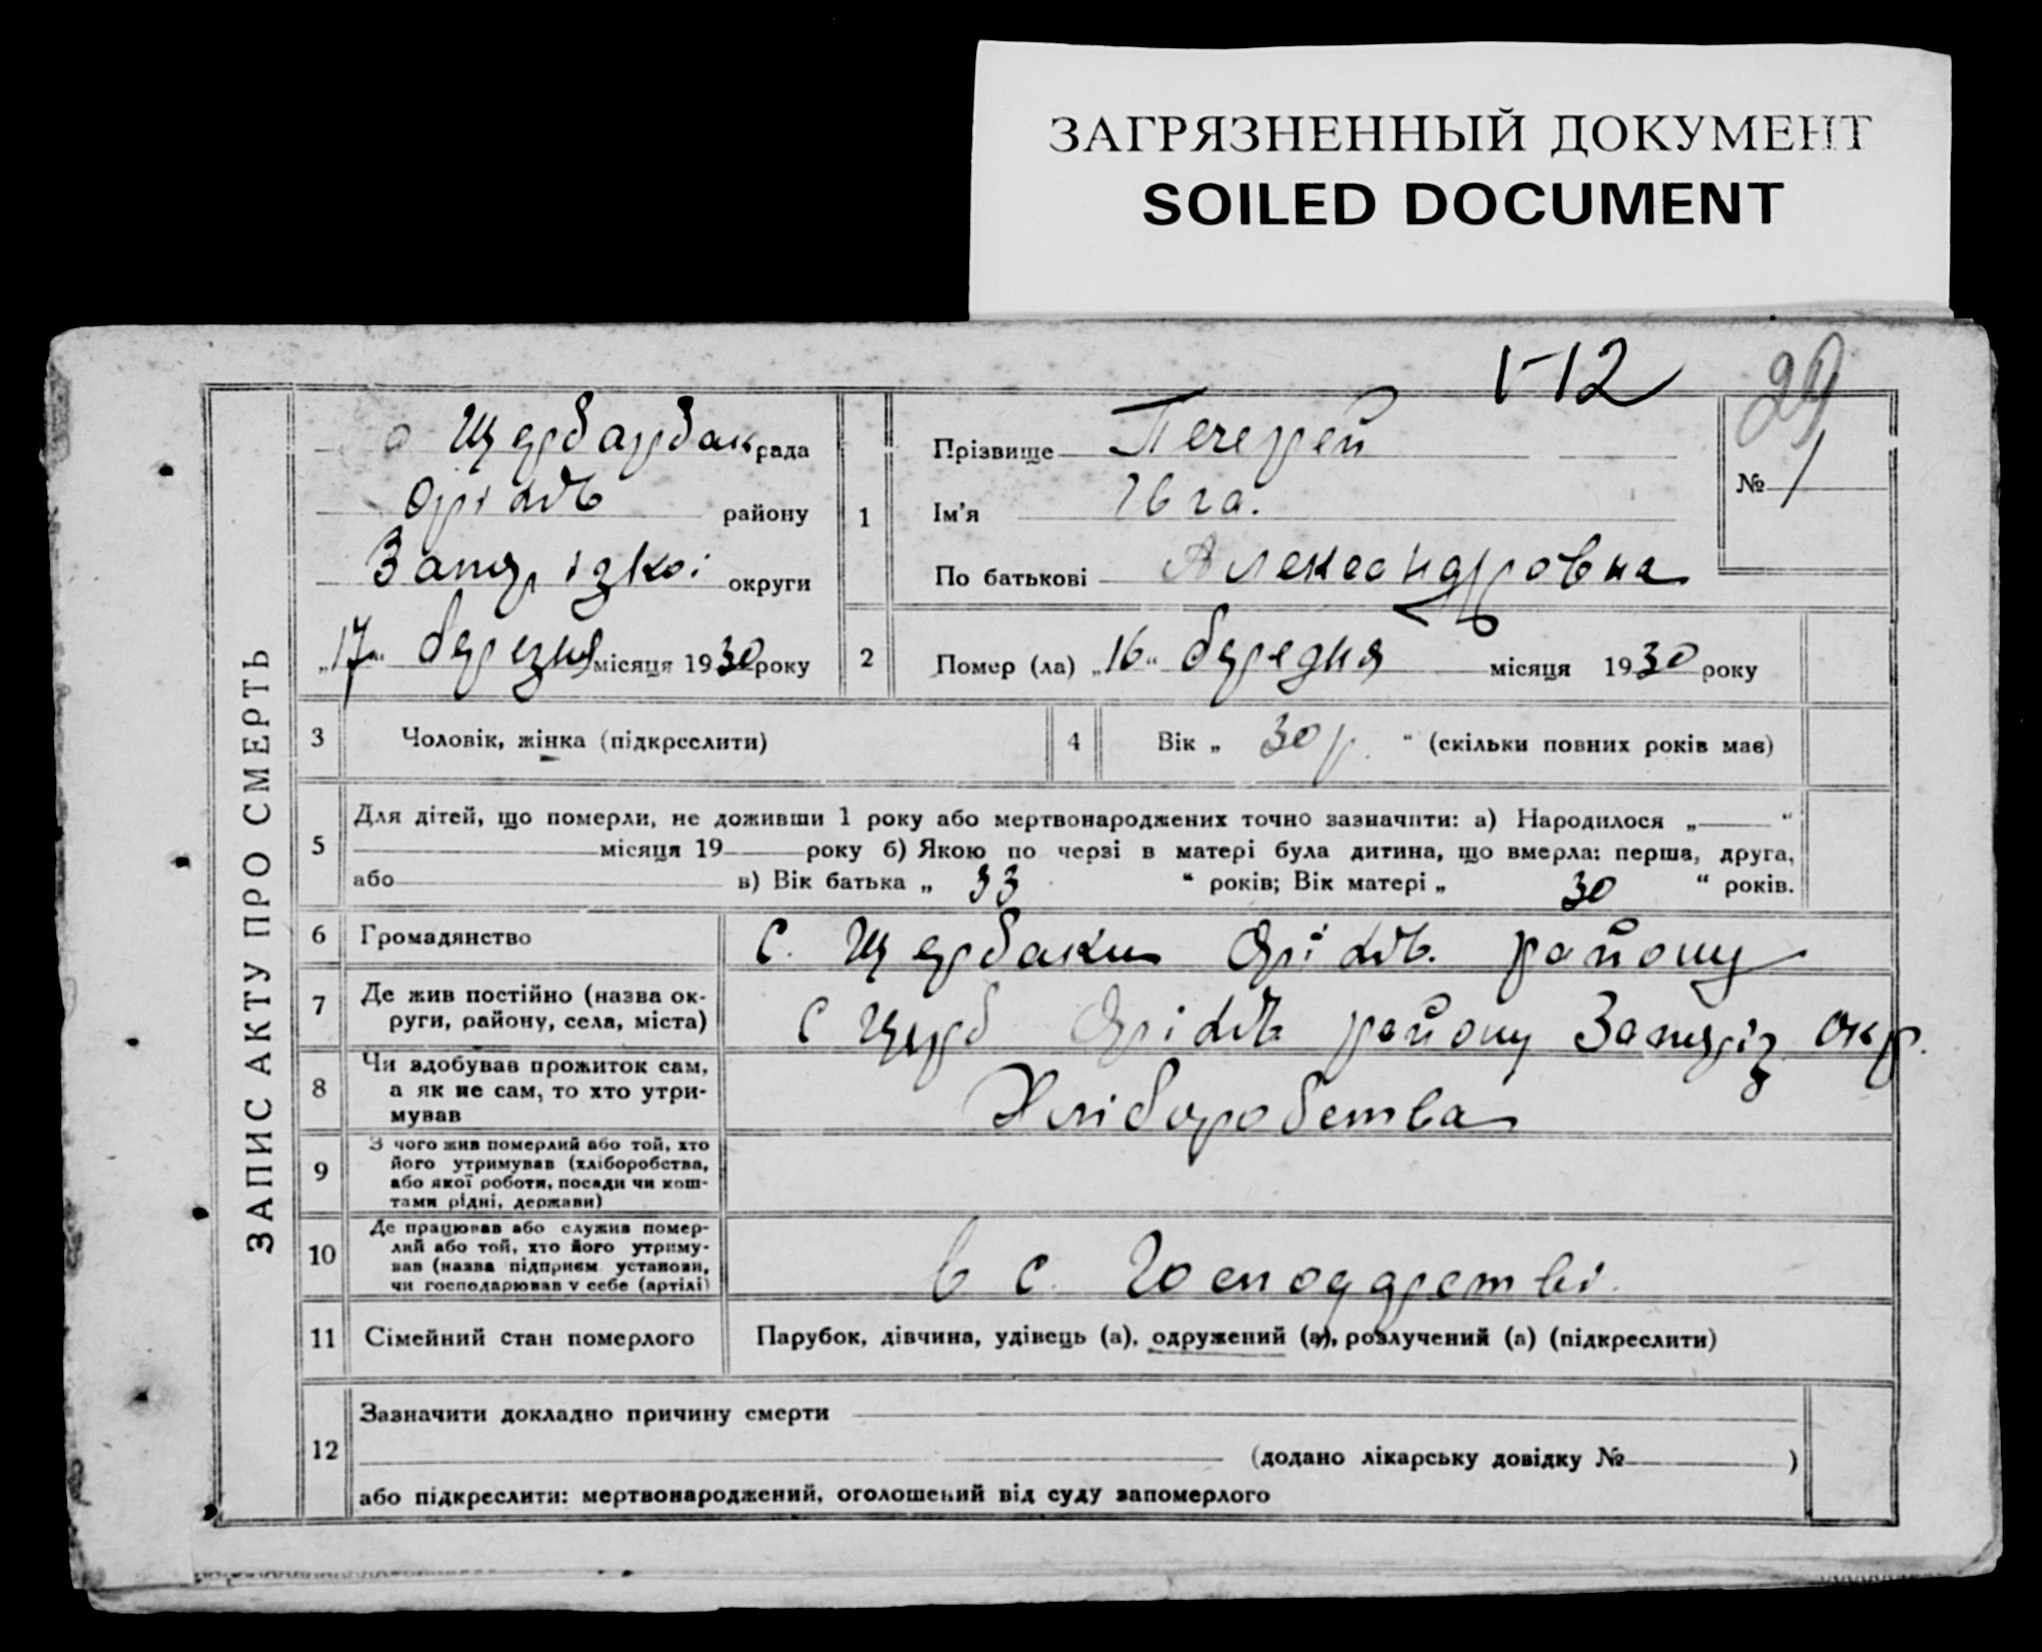 ЗАГРЯЗНЕННЫЙ ДОКУМЕНТ
SOILED DOCUMENT
1-12
29
ЗАПИС АКТУ ПРО СМЕРТЬ
рада
району
округи
„17“ березня місяця 1930 року
1
Прізвище Печерей
Ім'я
По батькові Александровна
№ 1
2
Помер (ла) „16“ березня місяця 1930 року
3
Чоловік, жінка (підкреслити)
4
Вік „ 30 р. “ (скільки повних років мав)
5
Для дітей, що померли, не доживши 1 року або мертвонароджених точно зазначити: а) Народилося „ “
місяця 19 року б) Якою по черзі в матері була дитина, що вмерла: перша, друга,
або в) Вік батька „ 33 “ років; Вік матері „ 30 “ років.
6
Громадянство
с. Щербаки Оріхів. району
7
Де жив постійно (назва ок-
руги, району, села, міста)
с Щерб Оріхів району Запоріз окр.
8
Чи здобував прожиток сам,
а як не сам, то хто утри-
мував
Хліборобства
9
З чого жив померлий або той, хто
його утримував (хліборобства,
або якої роботи, посади чи кош-
тами рідні, держави)
10
Де працював або служив помер-
лий або той, хто його утриму-
вав (назва підприєм. установи,
чи господарював у себе (артілі)
в с.
11
Сімейний стан померлого
Парубок, дівчина, удівець (а), одружений (а), розлучений (а) (підкреслити)
12
Зазначити докладно причину смерти
(додано лікарську довідку № )
або підкреслити: мертвонароджений, оголошений від суду запомерлого